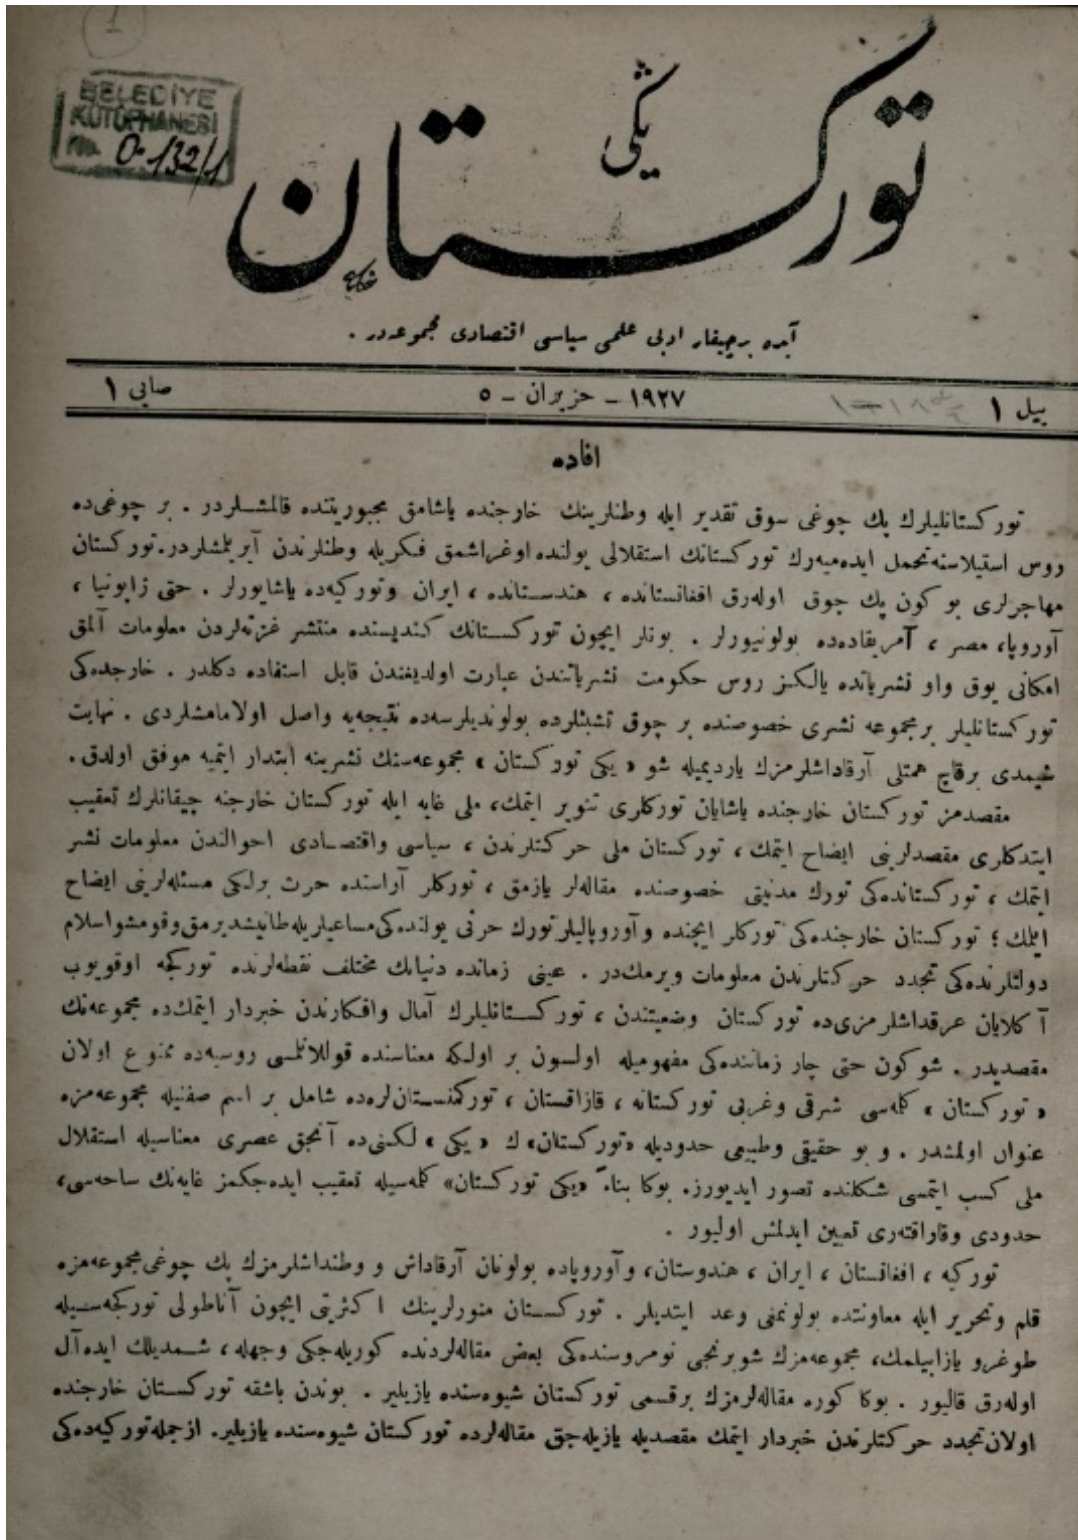 1
BELEDİYE
KÜTÜPHANESİ
No. O-132/1
یکی
تورکستان
آیده بر چیقار ادبی علمی سیاسی اقتصادی مجموعه‌در .
ییل ۱
۱۹۲۷ - حزیران - ۵
صایی ۱
افاده
تورکستانلیلرك پك چوغی سوق تقدیر ایله وطنلرینك خارجنده یاشامق مجبوریتنده قالمشلردر . بر چوغی‌ده
روس استیلاسنه تحمل ایده‌میه‌رك تورکستانك استقلالی یولنده اوغراشمق فکریله وطنلرندن آیریلمشلردر. تورکستان
مهاجرلری بو کون پك چوق اوله‌رق افغانستانده ، هندستانده ، ایران وتورکیه‌ده یاشایورلر . حتی ژاپونیا ،
آوروپا، مصر ، آمریقاده‌ده بولونیورلر . بونلر ایچون تورکستانك کندیسنده منتشر غزته‌لردن معلومات آلمق
امکانی یوق واو نشریاتده یالکنز روس حکومت نشریاتندن عبارت اولدیغندن قابل استفاده دکلدر . خارجده‌کی
تورکستانلیلر بر مجموعه نشری خصوصنده بر چوق تشبثلرده بولوندیلرسه‌ده نتیجه‌یه واصل اولامامشلردی . نهایت
شیمدی برقاچ همتلی آرقاداشلرمزك یاردیمیله شو « یکی تورکستان » مجموعه‌سنك نشرینه ابتدار ایتمیه موفق اولدق .
مقصدمز تورکستان خارجنده یاشایان تورکلری تنویر ایتمك، ملی غایه ایله تورکستان خارجنه چیقانلرك تعقیب
ایتدکلری مقصدلرینی ایضاح ایتمك ، تورکستان ملی حرکتلرندن ، سیاسی واقتصادی احوالندن معلومات نشر
ایتمك ، تورکستانده‌کی تورك مدنیتی خصوصنده مقاله‌لر یازمق ، تورکلر آراسنده حرث برلکی مسئله‌لرینی ایضاح
ایتمك ؛ تورکستان خارجنده‌کی تورکلر ایچنده و آوروپالیلر تورك حرثی یولنده‌کی مساعیلریله طانیشدیرمق وقومشو اسلام
دولتلرنده‌کی تجدد حرکتلرندن معلومات ویرمك‌در . عینی زمانده دنیانك مختلف نقطه‌لرنده تورکجه اوقویوب
آ کلایان عرقداشلرمزی‌ده تورکستان وضعیتندن ، تورکستانلیلرك آمال وافکارندن خبردار ایتمك‌ده مجموعه‌نك
مقصدیدر . شو کون حتی چار زماننده‌کی مفهومیله اولسون بر اولکه معناسنده قوللانلمسی روسیه‌ده ممنوع اولان
« تورکستان » کلمه‌سی شرقی وغربی تورکستانه ، قازاقستان ، تورکمنستان‌لره‌ده شامل بر اسم صفتیله مجموعه‌مزه
عنوان اولمشدر . و بو حقیقی وطبیعی حدودیله «تورکستان» ك « یکی » لکنی‌ده آنجق عصری معناسیله استقلال
ملی کسب ایتمسی شکلنده تصور ایدیورز. بوکا بناءً «یکی تورکستان» کلمه‌سیله تعقیب ایده‌جکمز غایه‌نك ساحه‌سی،
حدودی وقاراقته‌ری تعیین ایدلمش اولیور .
تورکیه ، افغانستان ، ایران ، هندوستان، و آوروپاده بولونان آرقاداش و وطنداشلرمزك پك چوغی مجموعه‌مزه
قلم وتحریر ایله معاونتده بولونمنی وعد ایتدیلر . تورکستان منورلرینك اکثریتی ایچون آناطولی تورکجه‌سیله
طوغرو یازابیلمك، مجموعه‌مزك شو برنجی نومروسنده‌کی بعض مقاله‌لردنده کوریله‌جکی وجهله ، شمدیلك ایده‌آل
اوله‌رق قالیور . بوکا کوره مقاله‌لرمزك برقسمی تورکستان شیوه‌سنده یازیلیر . بوندن باشقه تورکستان خارجنده
اولان تجدد حرکتلرندن خبردار ایتمك مقصدیله یازیله‌جق مقاله‌لرده تورکستان شیوه‌سنده یازیلیر. ازجمله تورکیه‌ده‌کی